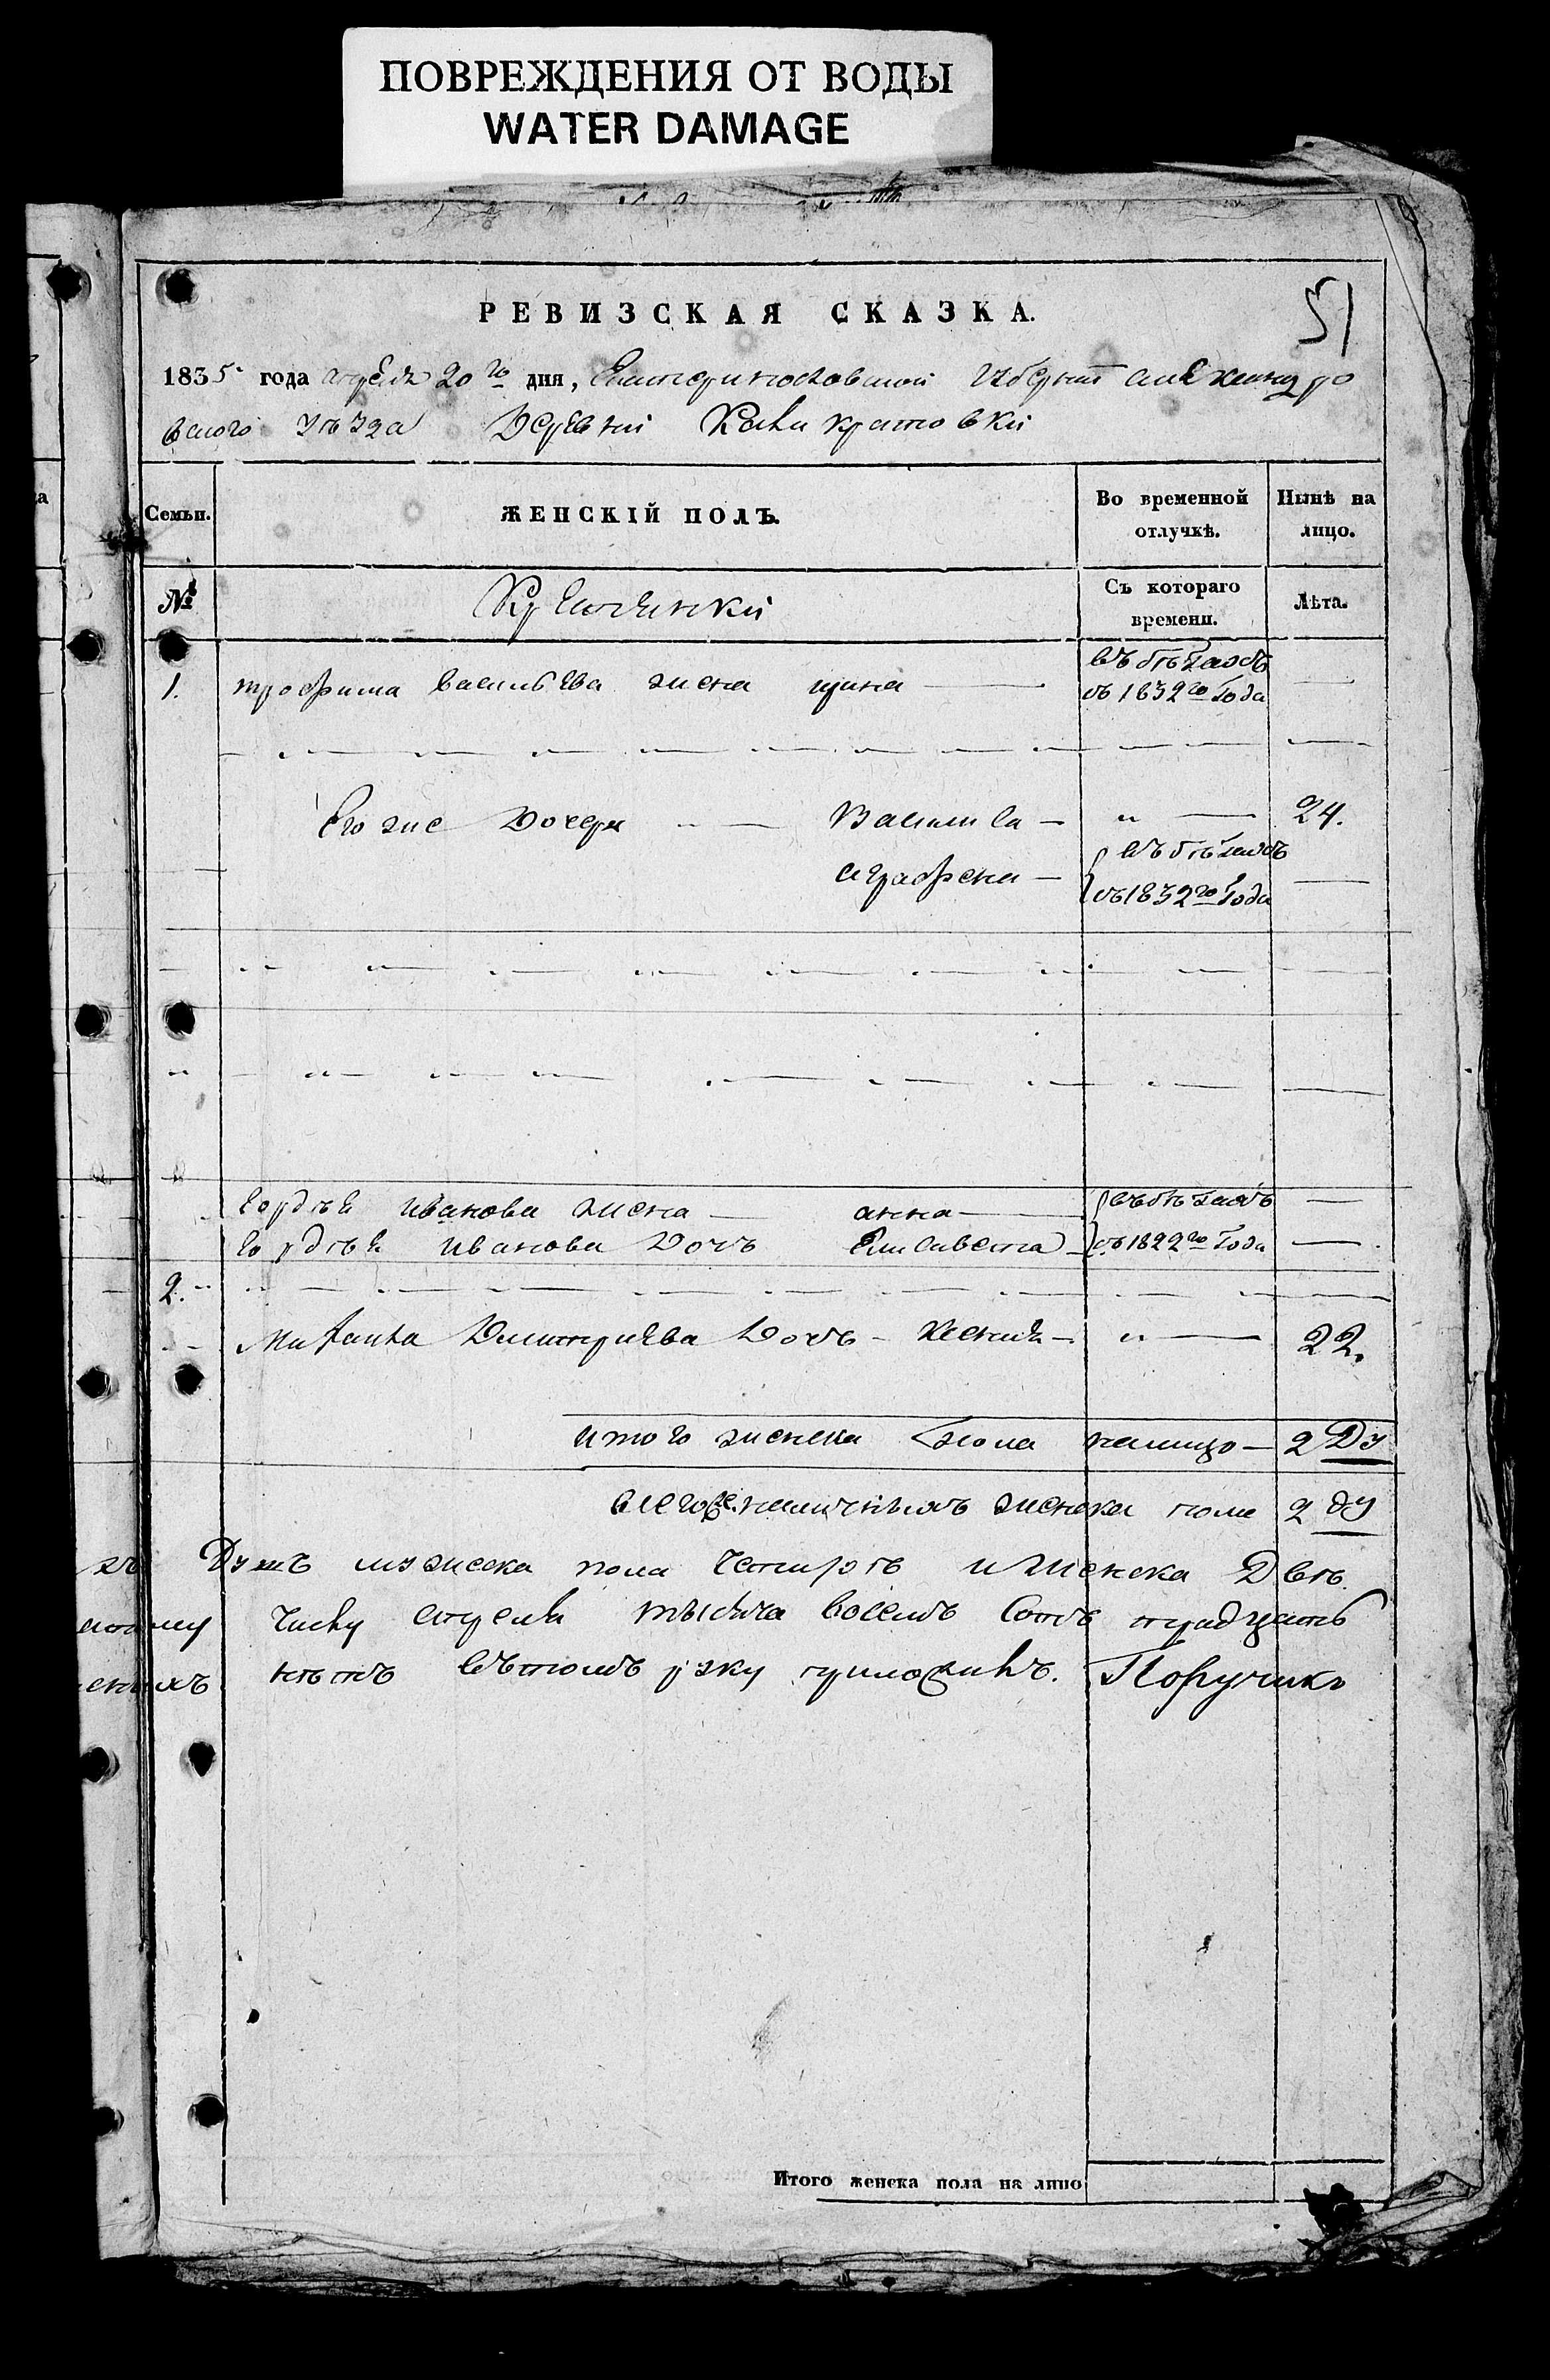 ПОВРЕЖДЕНИЯ ОТ ВОДЫ
WATER DAMAGE
51
РЕВИЗСКАЯ СКАЗКА.
1835. года апреля 20го дня, Екатеринославской Губерніи александро
вского уезда Деревни Каликратовки
Семьи.
ЖЕНСКІЙ ПОЛЪ.
Во временной отлучкѣ.
Нынѣ на лицо.
№
Крестьянки
Съ котораго времени.
Лѣта.
1. трофима васильева жена ирина — въ бѣгахъ съ 1832го Года —
Его же дочери Васили́са — " — 24.
аграфена — въ бѣгахъ съ 1832го Года —
Гордѣя иванова жена — анна — въ бѣгахъ —
Гордѣя иванова дочь Елисавета — съ 1822го Года —
2.
Дмитриева дочь — Ксения — " — 22.
итого женска пола налицо — 2 Ду
всего наличныхъ женска пола 2 ду
Душъ мужеска пола четыре и женска Две.
числу апреля тысяча восемь сотъ тридцать
въ томъ руку приложилъ. Поручикъ
Итого женска пола на лицо